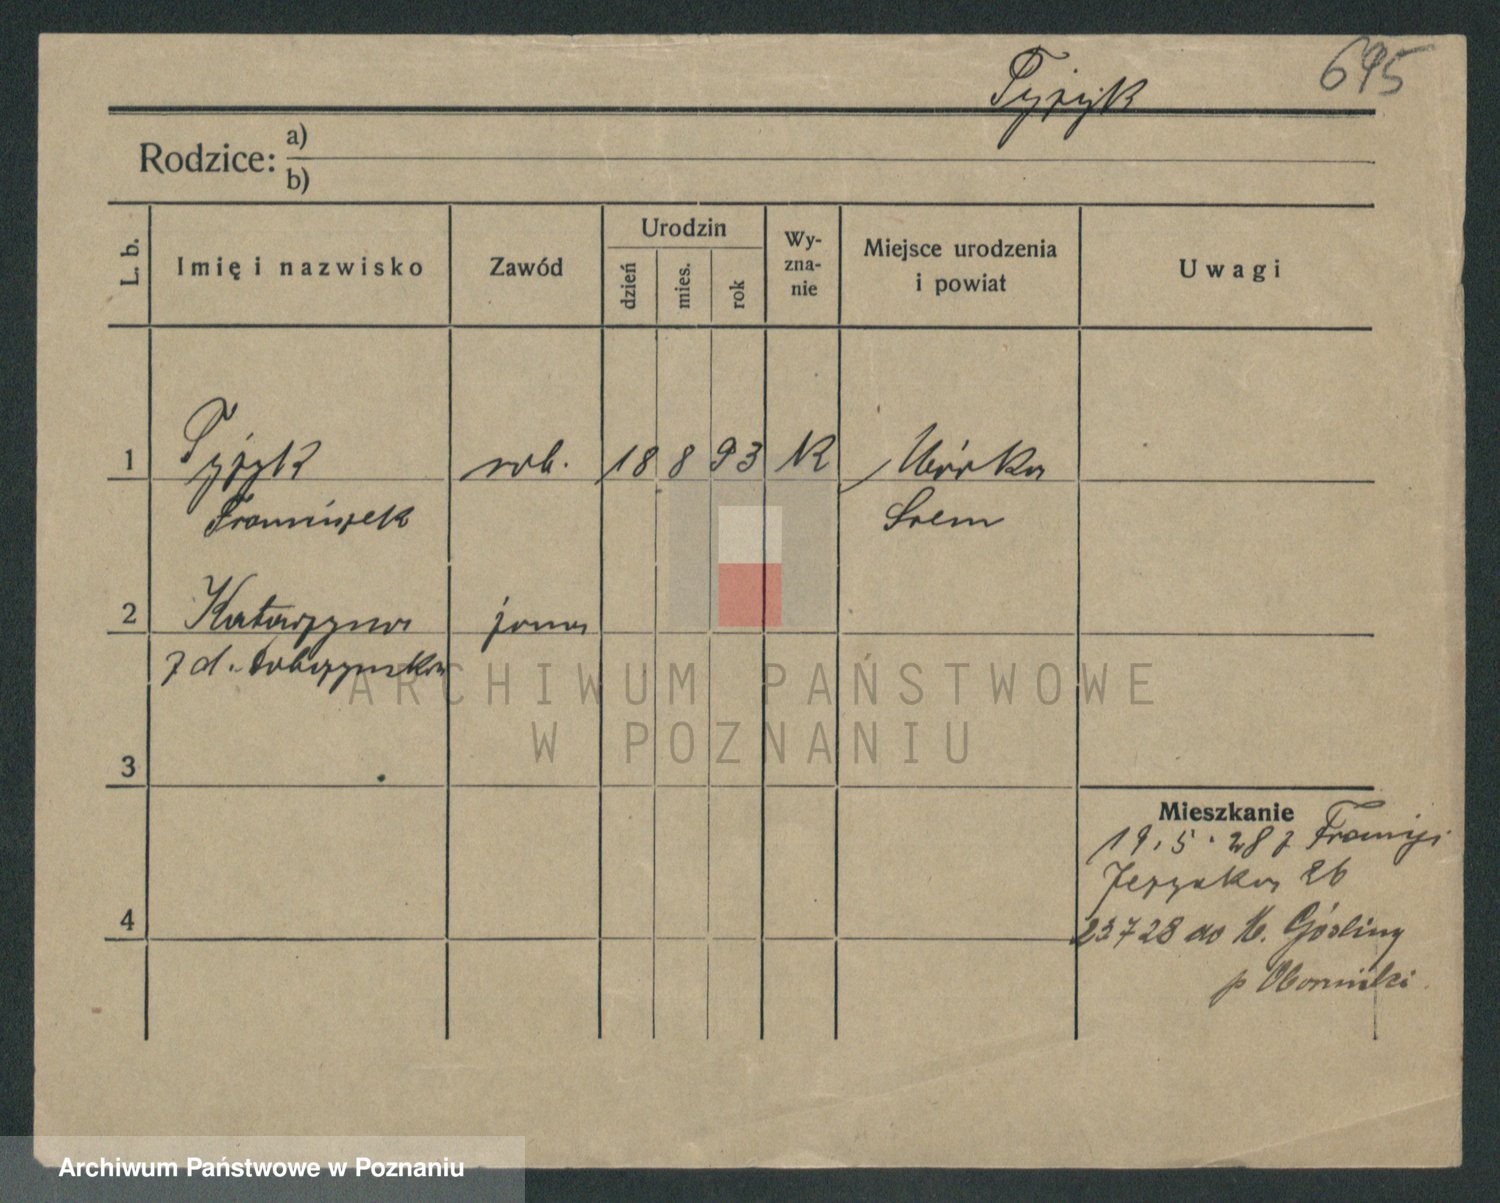 Tyrzyk
695
Rodzice: a)
b)
L. b.
Imię i nazwisko
Zawód
Urodzin
dzień
mies.
rok
Wy-
zna-
nie
Miejsce urodzenia
i powiat
Uwagi
1
rob.
18 8 93
K
Mórka
Franciszek
Śrem
2
Katarzyna
żona
z d.
ARCHIWUM PAŃSTWOWE
W POZNANIU
3
Mieszkanie
19. 5. 28 z
26
4
23 7 28 do M. Gośliny
p Oborniki
Archiwum Państwowe w Poznaniu